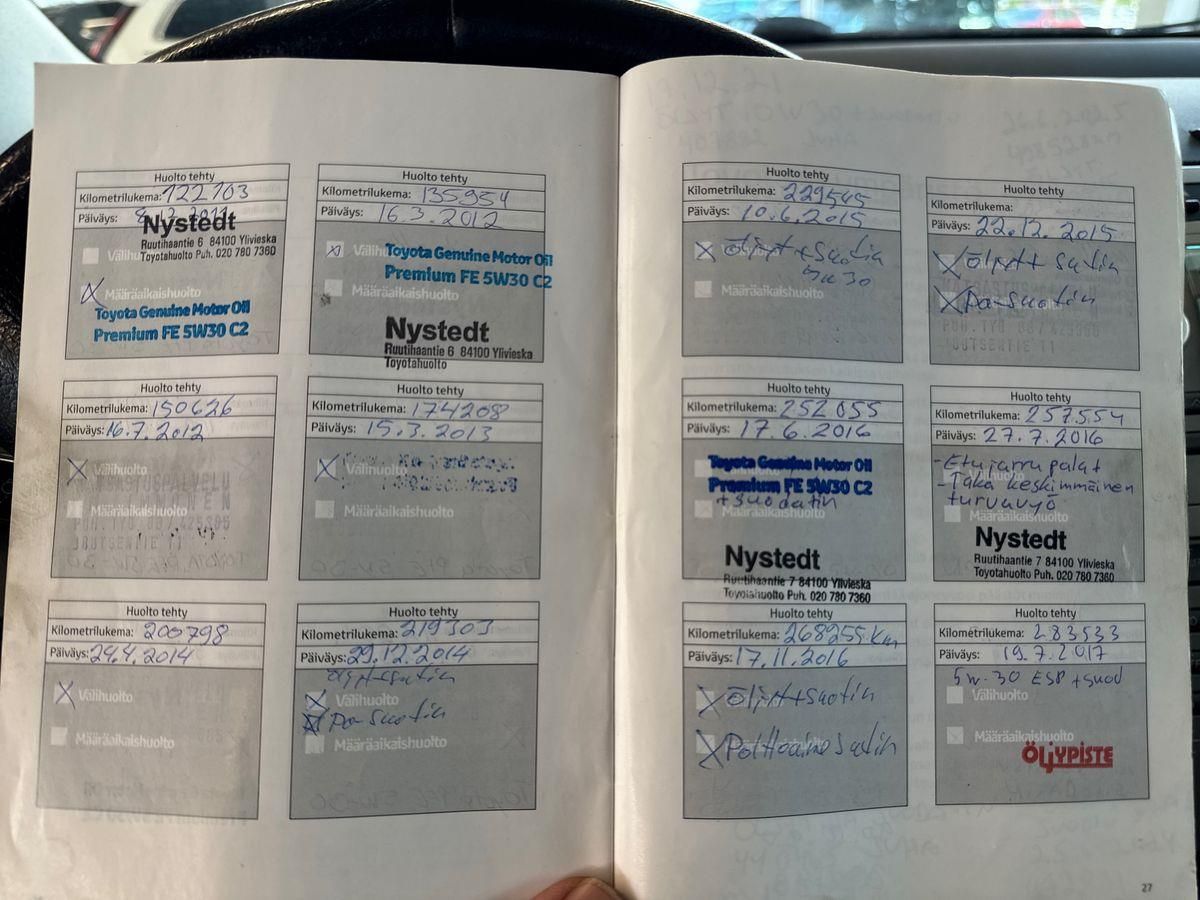 Huolto tehty
Kilometrilukema: 122703
Päiväys:
Nystedt
Ruutihaantie 6 84100 Ylivieska
Toyotahuolto Puh. 020 780 7360
Määräaikaishuolto
Toyota Genuine Motor Oil
Premium FE 5W30 C2
Huolto tehty
Kilometrilukema: 135954
Päiväys: 16.3.2012
Välihuolto
Toyota Genuine Motor Oil
Premium FE 5W30 C2
Määräaikaishuolto
Nystedt
Ruutihaantie 6 84100 Ylivieska
Toyotahuolto
Huolto tehty
Kilometrilukema: 150626
Päiväys: 16.7.2012
Välihuolto
Määräaikaishuolto
Huolto tehty
Kilometrilukema: 174208
Päiväys: 15.3.2013
Välihuolto
Määräaikaishuolto
Huolto tehty
Kilometrilukema: 200798
Päiväys: 24.4.2014
Välihuolto
Määräaikaishuolto
Huolto tehty
Kilometrilukema: 219303
Päiväys: 29.12.2014
Välihuolto
Pa-Suotin
Määräaikaishuolto
Huolto tehty
Kilometrilukema: 229545
Päiväys: 10.6.2015
Öljyt + Suotin
5w30
Määräaikaishuolto
Huolto tehty
Kilometrilukema:
Päiväys: 22.12.2015
Öljyt+ Suotin
Pa-Suotin
Huolto tehty
Kilometrilukema: 252055
Päiväys: 17.6.2016
Toyota Genuine Motor Oil
Premium FE 5W30 C2
+ suodatin
Määräaikaishuolto
Nystedt
Ruutihaantie 7 84100 Ylivieska
Toyotahuolto Puh. 020 780 7360
Huolto tehty
Kilometrilukema: 257554
Päiväys: 27.7.2016
- Etujarrupalat
- Taka keskimmäinen
turvavyö
Määräaikaishuolto
Nystedt
Ruutihaantie 7 84100 Ylivieska
Toyotahuolto Puh. 020 780 7360
Huolto tehty
Kilometrilukema: 268255 km
Päiväys: 17.11.2016
Öljyt+Suotin
Polttoaine Suotin
Huolto tehty
Kilometrilukema: 283533
Päiväys: 19.7.2017
5w-30 ESP + suod
Välihuolto
Määräaikaishuolto
ÖLJYPISTE
27